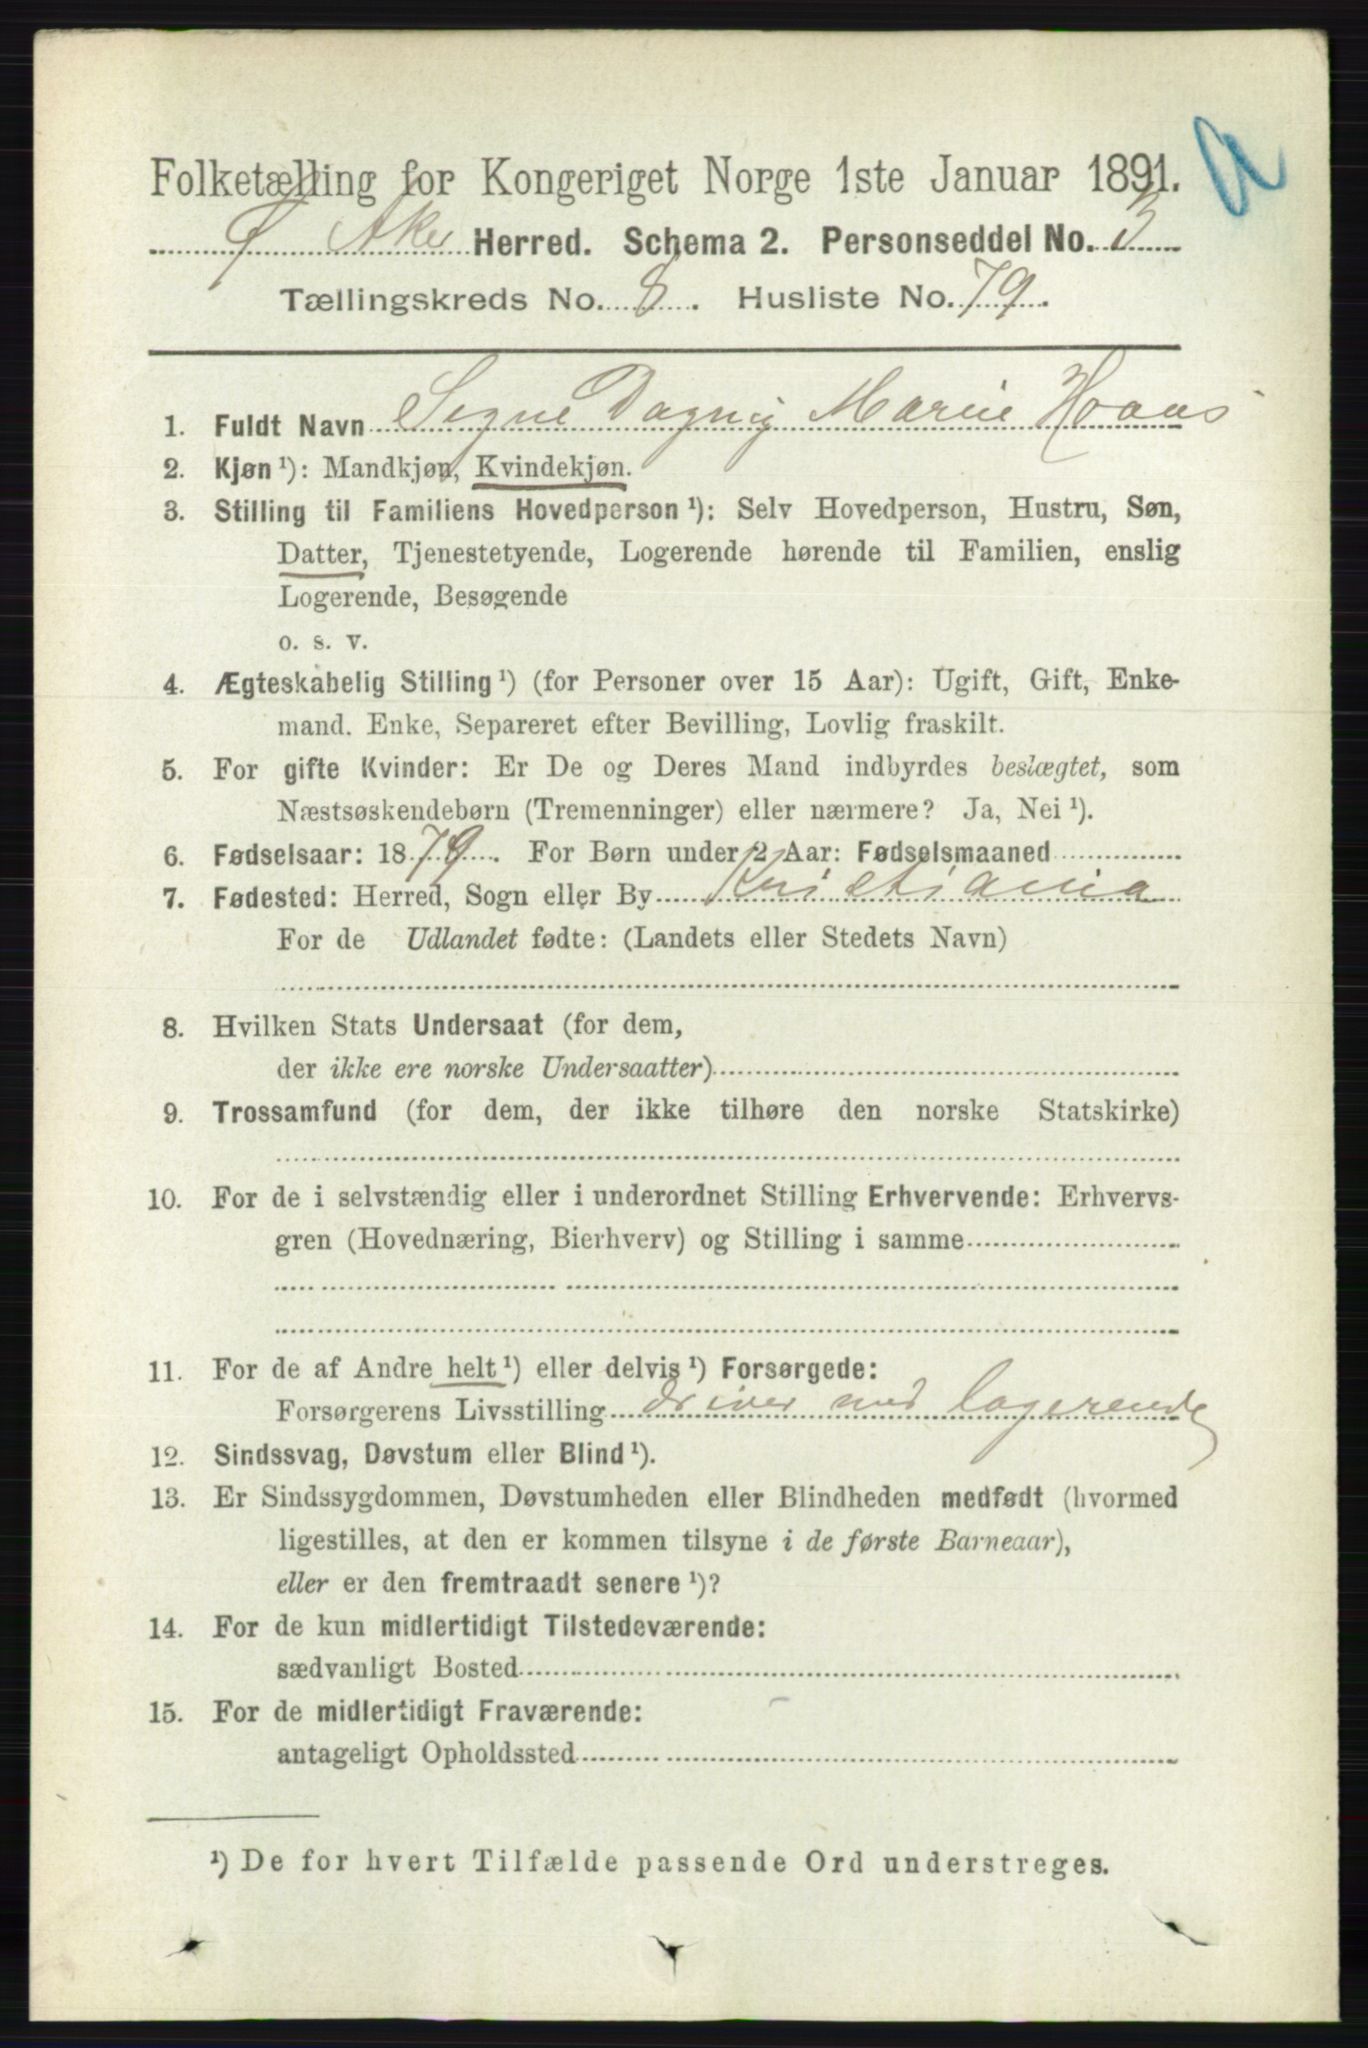 a
Folketælling for Kongeriget Norge 1ste Januar 1891.
Ø Aker Herred. Schema 2. Personseddel No. 3
Tællingskreds No. 8. Husliste No. 79.
1. Fuldt Navn Signe Dagny Marie Haas
2. Kjøn ¹): Mandkjøn, Kvindekjøn.
3. Stilling til Familiens Hovedperson ¹): Selv Hovedperson, Hustru, Søn,
Datter, Tjenestetyende, Logerende hørende til Familien, enslig
Logerende, Besøgende
o. s. v.
4. Ægteskabelig Stilling ¹) (for Personer over 15 Aar): Ugift, Gift, Enke-
mand. Enke, Separeret efter Bevilling, Lovlig fraskilt.
5. For gifte Kvinder: Er De og Deres Mand indbyrdes beslægtet, som
Næstsøskendebørn (Tremenninger) eller nærmere? Ja, Nei ¹).
6. Fødselsaar: 1879. For Børn under 2 Aar: Fødselsmaaned
7. Fødested: Herred, Sogn eller By Kristiania
For de Udlandet fødte: (Landets eller Stedets Navn)
8. Hvilken Stats Undersaat (for dem,
der ikke ere norske Undersaatter)
9. Trossamfund (for dem, der ikke tilhøre den norske Statskirke)
10. For de i selvstændig eller i underordnet Stilling Erhvervende: Erhvervs-
gren (Hovednæring, Bierhverv) og Stilling i samme
11. For de af Andre helt ¹) eller delvis ¹) Forsørgede:
Forsørgerens Livsstilling driver med logerende
12. Sindssvag, Døvstum eller Blind ¹).
13. Er Sindssygdommen, Døvstumheden eller Blindheden medfødt (hvormed
ligestilles, at den er kommen tilsyne i de første Barneaar),
eller er den fremtraadt senere ¹)?
14. For de kun midlertidigt Tilstedeværende:
sædvanligt Bosted
15. For de midlertidigt Fraværende:
antageligt Opholdssted
¹) De for hvert Tilfælde passende Ord understreges.